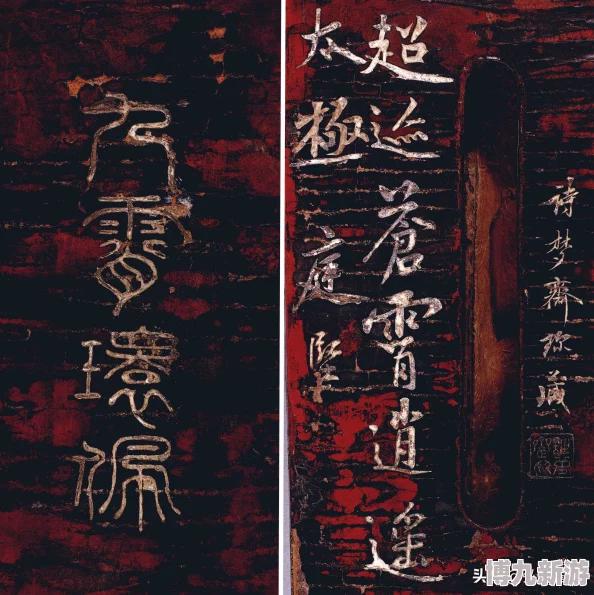 九霄環佩
詩夢齋珍藏
超迹蒼霄逍遥
太極庭堅
头
博九新游